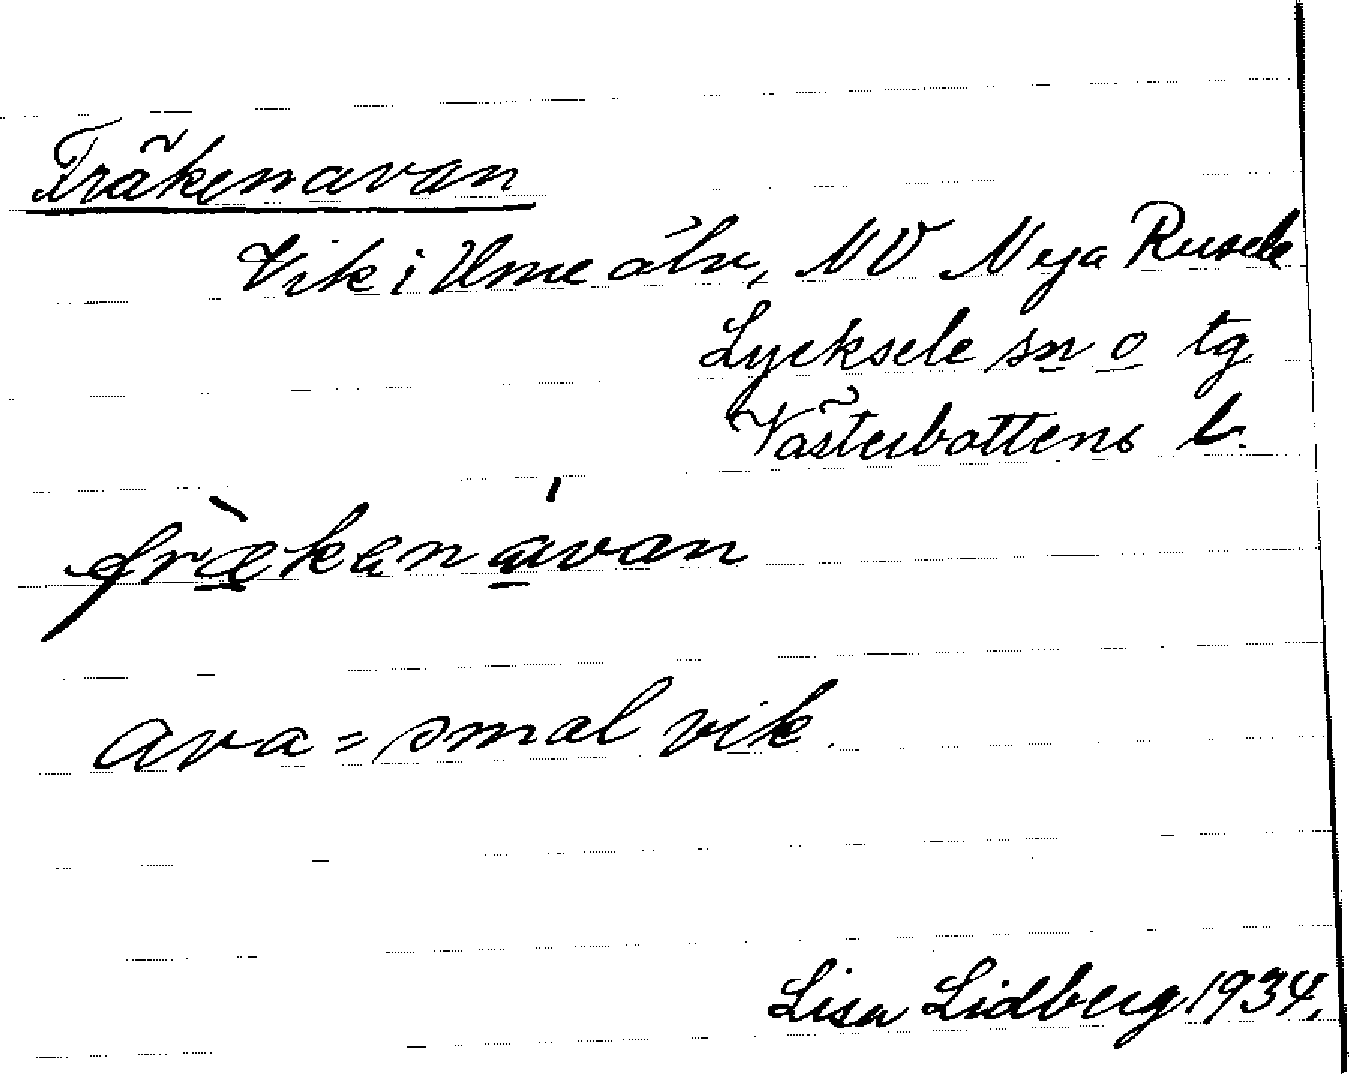 Fräkenavan
Vik i Ume älv, NV Nya Rusele
Lycksele sn o tg
Västerbottens l.
fræ̀kenávan
ava = smal vik.
Lisa Lidberg 1934.